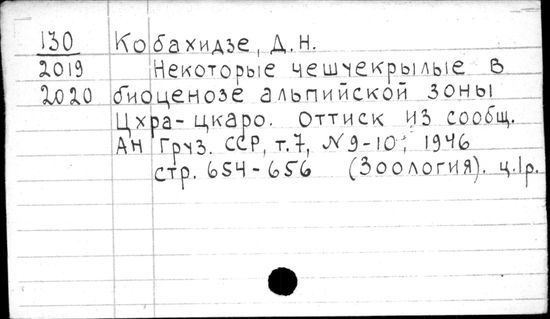 130 Кобахидзе, Д.Н.
2019 Некоторые чешчекрылые в
2020 биоценозе альпийской зоны
Цхра-цкаро. Оттиск из сообщ.
АН Груз. ССР, т.7, №9-10; 1946
стр. 654-656 (Зоология). ц.1р.